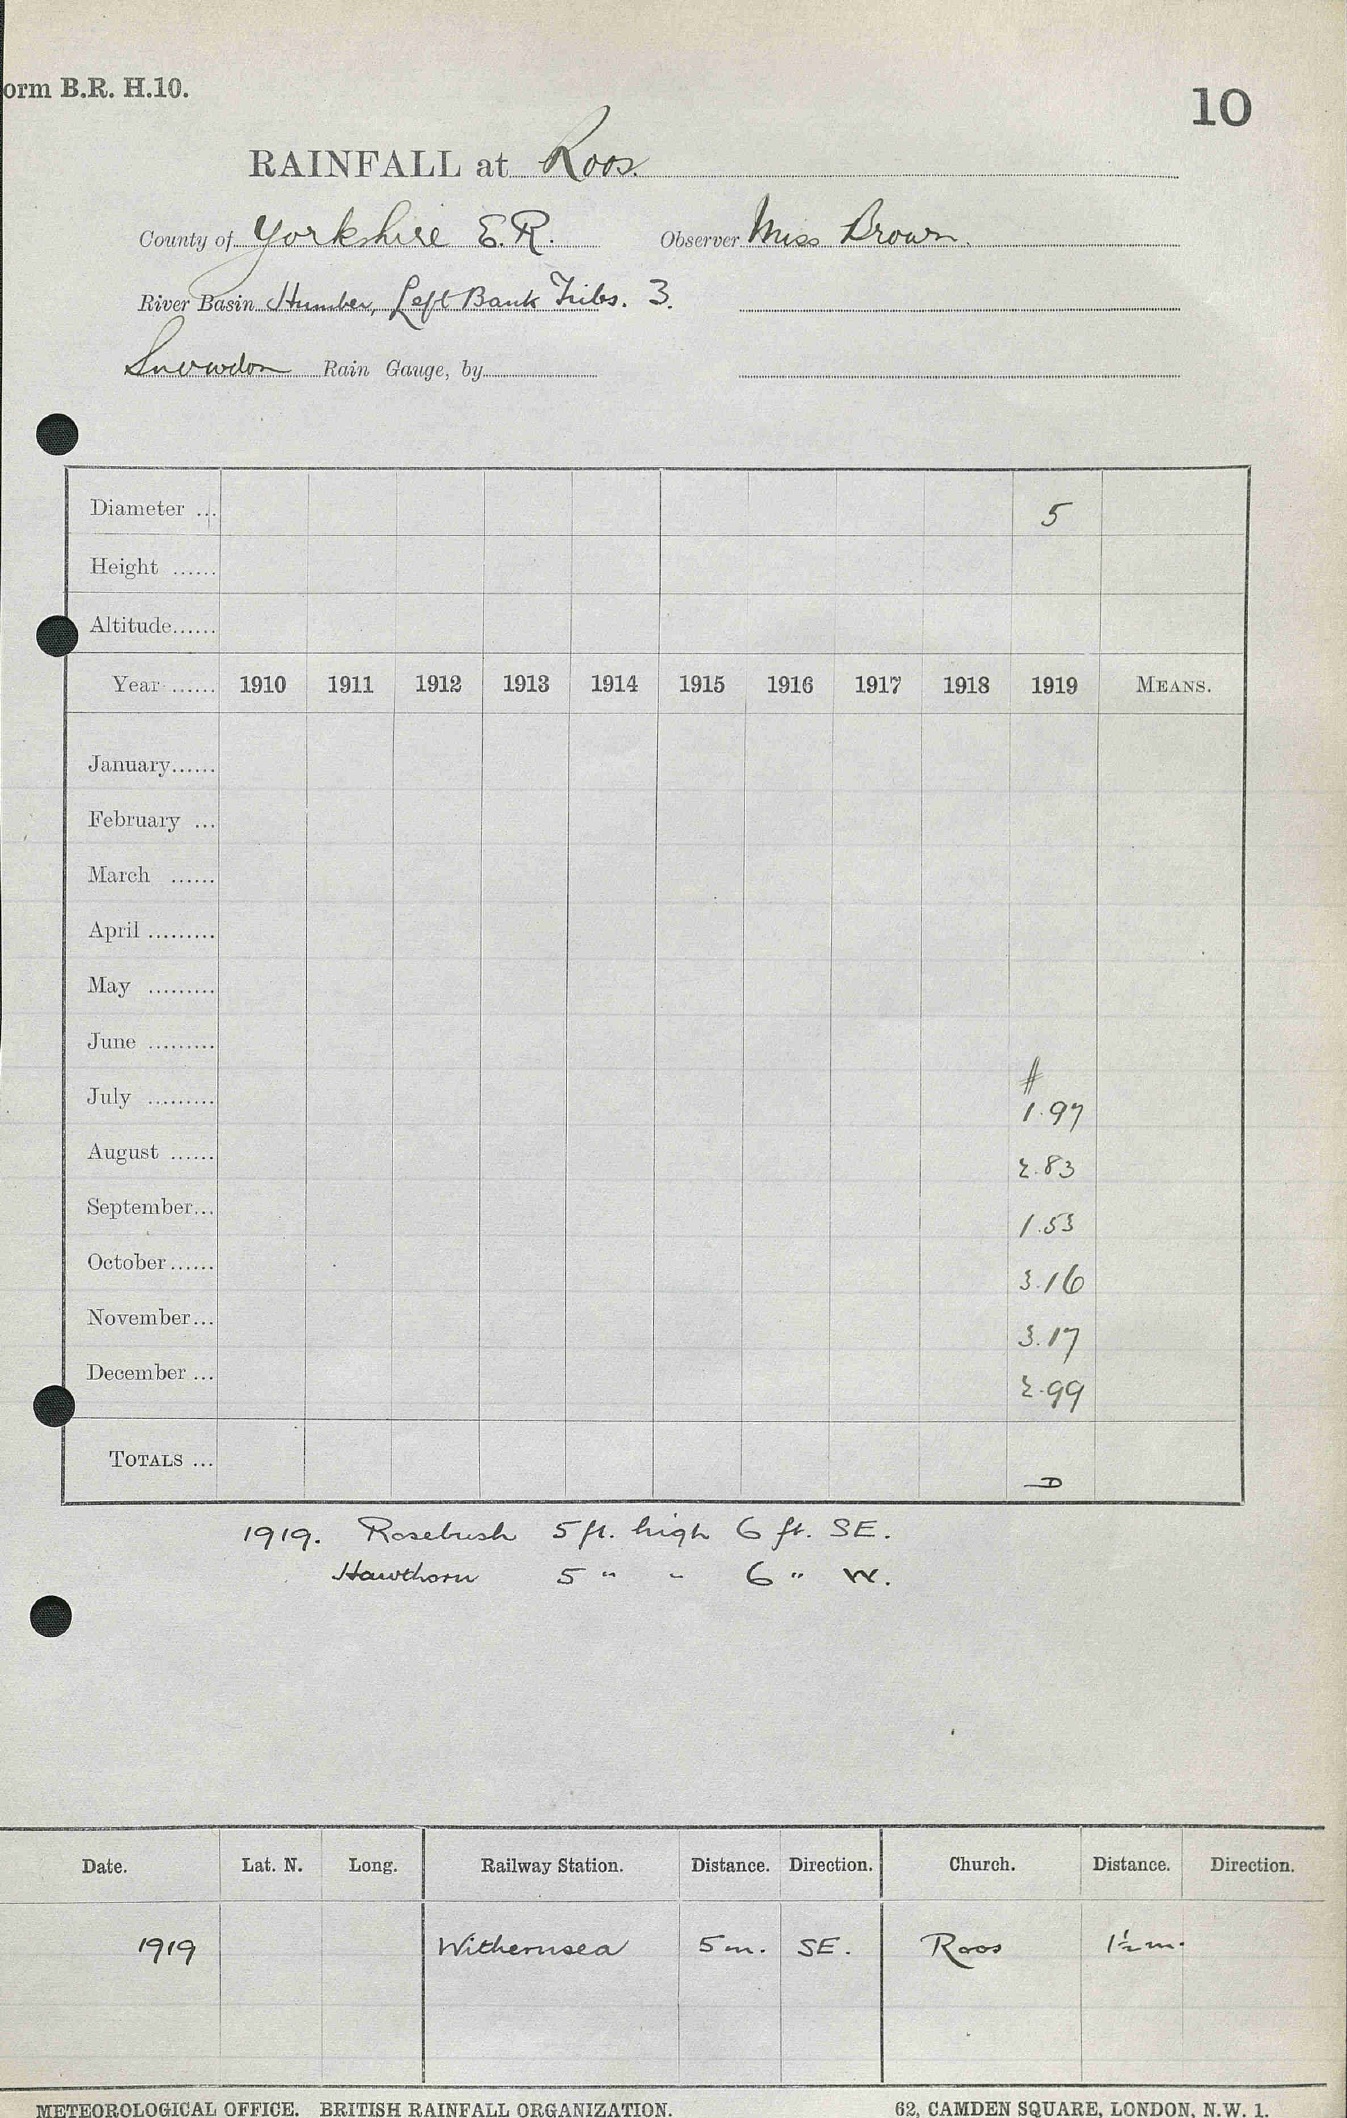 orm B.R. H.10.
10
RAINFALL at Roos.
County of Yorkshire E.R. Observer Miss Brown.
River Basin Humber, Left Bank Tribs. 3.
Snowdon Rain Gauge, by
Diameter ... 5
Height ......
Altitude......
Year ...... 1910 1911 1912 1913 1914 1915 1916 1917 1918 1919 MEANS.
January......
February ...
March ......
April .........
May .........
June .........
July ......... 1.97
August ...... 2.83
September... 1.53
October...... 3.16
November... 3.17
December ... 2.99
TOTALS ...
1919. Rosebush 5 ft. high 6 ft. SE.
Hawthorn 5 " " 6 " W.
Date. Lat. N. Long. Railway Station. Distance. Direction. Church. Distance. Direction.
1919 Withernsea 5 m. SE. Roos 1½ m.
METEOROLOGICAL OFFICE. BRITISH RAINFALL ORGANIZATION. 62, CAMDEN SQUARE, LONDON, N.W. 1.